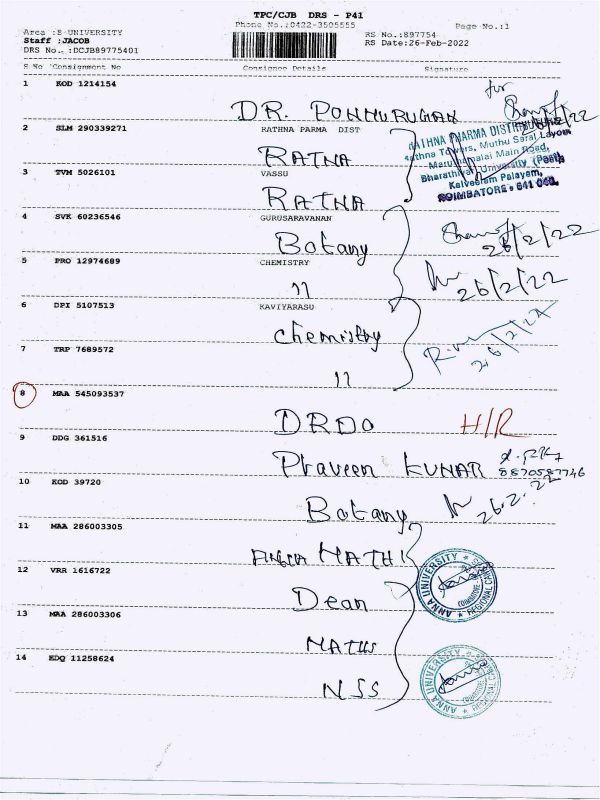 TPC/CJB DRS - P41
Phone No.:0422-3505555 Page No.:1
Area :B-UNIVERSITY
Staff :JACOB
DRS No. :DCJB89775401
RS No.:897754
RS Date:26-Feb-2022
S No Consignment No Consignee Details Signature
1 KOD 1214154
DR. PONMURUGAN for 26/2/22
2 SLM 290339271 RATHNA PARMA DIST
RATNA
RATHNA PHARMA DISTRIBUTORS
Rathna Towers, Muthu Saral Layout
Maruthamalai Main Road,
Bharathiyar University (Post),
Kalveeram Palayam,
COIMBATORE - 641 046.
3 TVM 5026101 VASSU
RATNA
4 SVK 60236546 GURUSARAVANAN
Botany 26/2/22
5 PRO 12974689 CHEMISTRY
11 26/2/22
6 DPI 5107513 KAVIYARASU
Chemistry 26/2/22
7 TRP 7689572
11
8 MAA 545093537
DRDO H/R
9 DDG 361516
Praveen KUMAR 8870587746
10 KOD 39720
Botany 26.2.22
11 MAA 286003305
MATHI
ANNA UNIVERSITY REGIONAL CAMPUS COIMBATORE
12 VRR 1616722
Dean
13 MAA 286003306
MATHS
14 EDQ 11258624
NSS
ANNA UNIVERSITY REGIONAL CAMPUS COIMBATORE